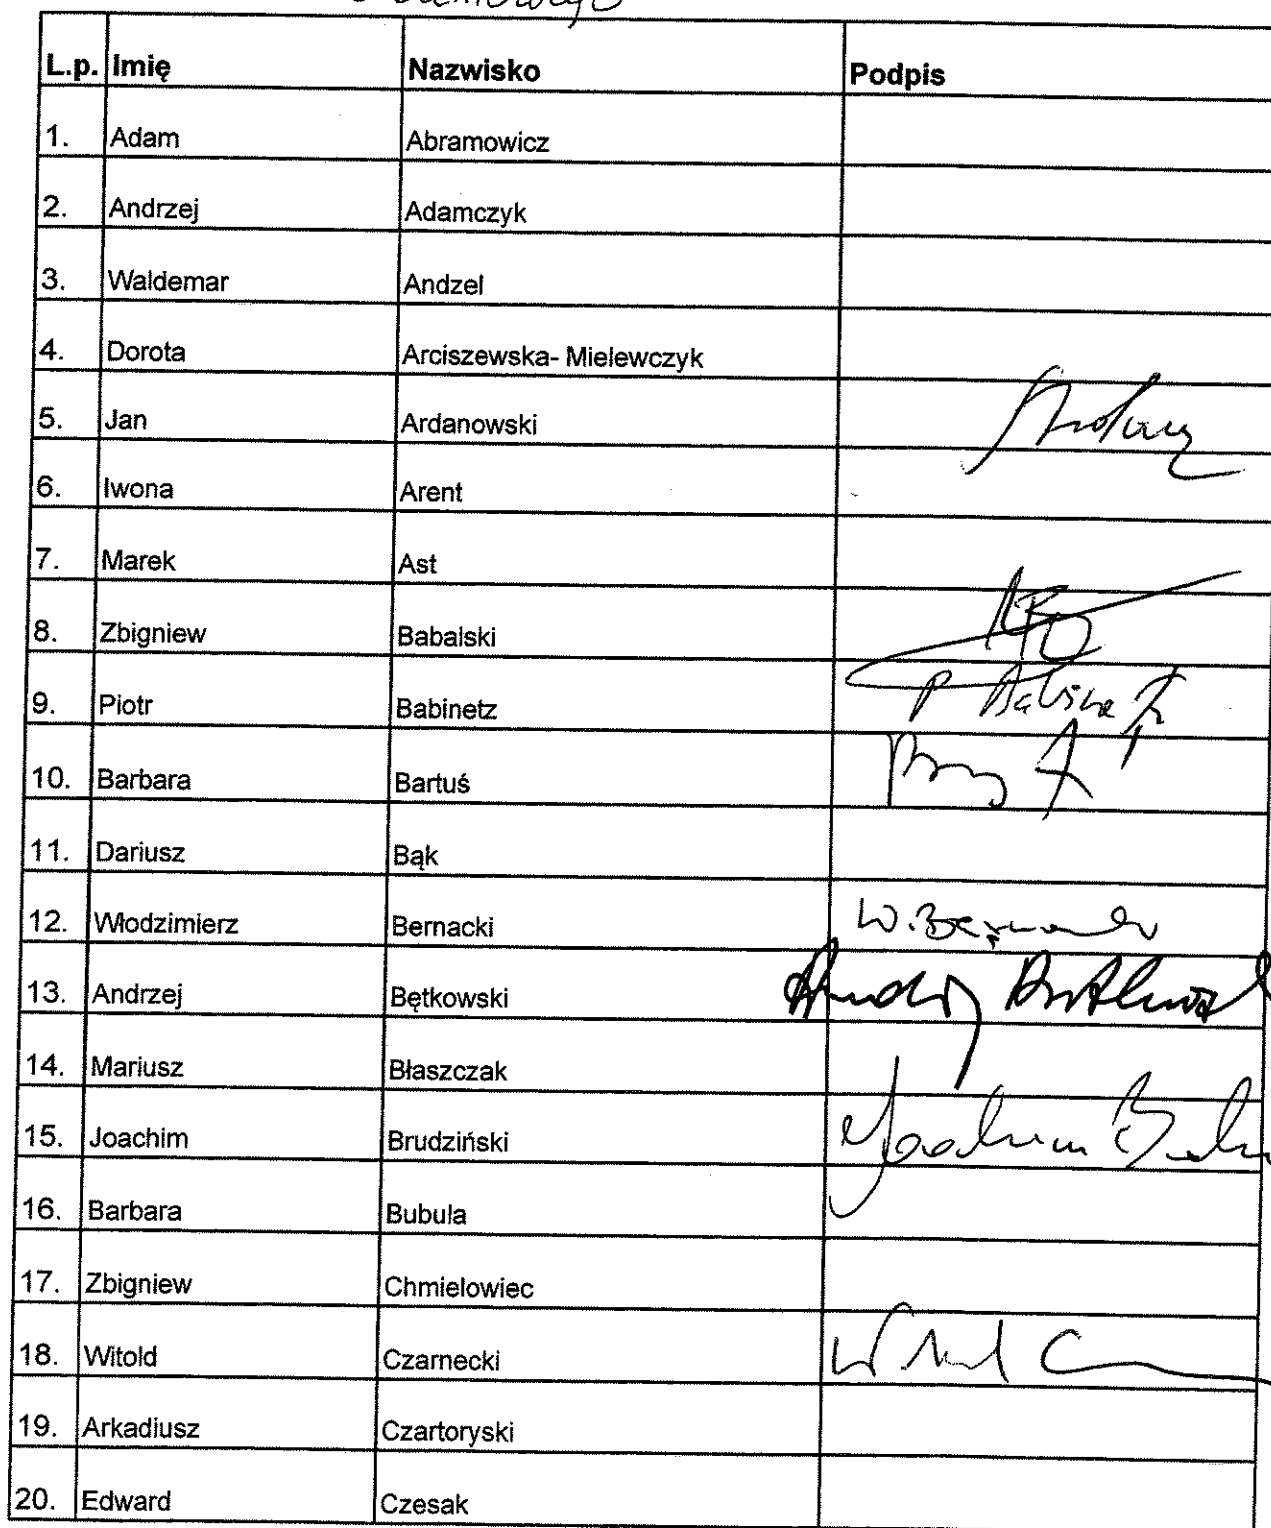 L.p. Imię Nazwisko Podpis
1. Adam Abramowicz
2. Andrzej Adamczyk
3. Waldemar Andzel
4. Dorota Arciszewska- Mielewczyk
5. Jan Ardanowski
6. Iwona Arent
7. Marek Ast
8. Zbigniew Babalski
9. Piotr Babinetz P Babinetz
10. Barbara Bartuś
11. Dariusz Bąk
12. Włodzimierz Bernacki W. Bernacki
13. Andrzej Bętkowski Andrzej Bętkowski
14. Mariusz Błaszczak
15. Joachim Brudziński Joachim
16. Barbara Bubula
17. Zbigniew Chmielowiec
18. Witold Czarnecki
19. Arkadiusz Czartoryski
20. Edward Czesak